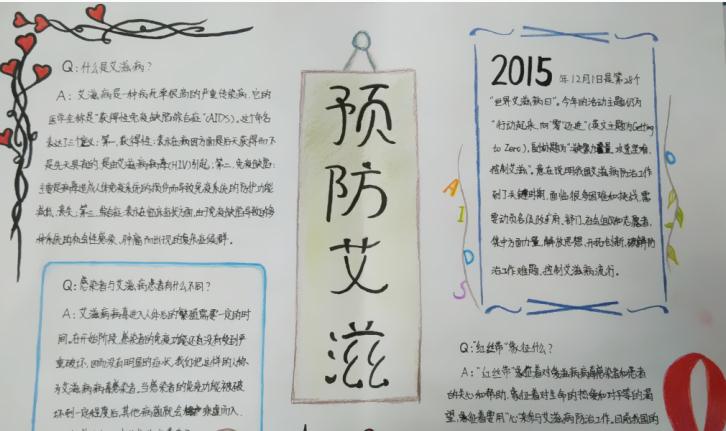 Q:什么是艾滋病?
A:艾滋病是一种病死率很高的严重传染病,它的
医学全称是“获得性免疫缺陷综合症”(AIDS)。这个命名
表达了三个定义:第一,获得性:表示在病因方面是后天获得而不
是先天具有的,是由艾滋病病毒(HIV)引起;第二,免疫缺陷:
主要是病毒造成人体免疫系统的损伤而导致免疫系统的防护功能
Q:感染者与艾滋病患者有什么不同?
A:艾滋病病毒进入人体后的繁殖需要一定的时
间。在开始阶段,感染者的免疫功能还没有受到严
重破坏,因而没有明显的症状,我们把这样的人称
为艾滋病病毒感染者。当感染者的免疫功能被破
坏到一定程度后,其他病菌就会乘虚而入,
预防艾滋
2015年12月1日是第28个
“世界艾滋病日”。今年的活动主题仍为
“行动起来,向‘零’迈进”(英文主题为Getting
to Zero),副标题为“
控制艾滋”。意在说明我国艾滋病防治工作
到了关键时期,面临很多困难和挑战,需
要动员各级政府、部门、社会组织和志愿者,
集中方面力量,解放思想,开拓创新,破解防
治工作难题,控制艾滋病流行。
AIDS
Q:“红丝带”象征什么?
A:“红丝带”象征着对艾滋病病毒感染者和患者
的关心和帮助,象征着对生命的热爱和对平等的渴
望,象征着要用“心”来参与艾滋病防治工作。目前我国的